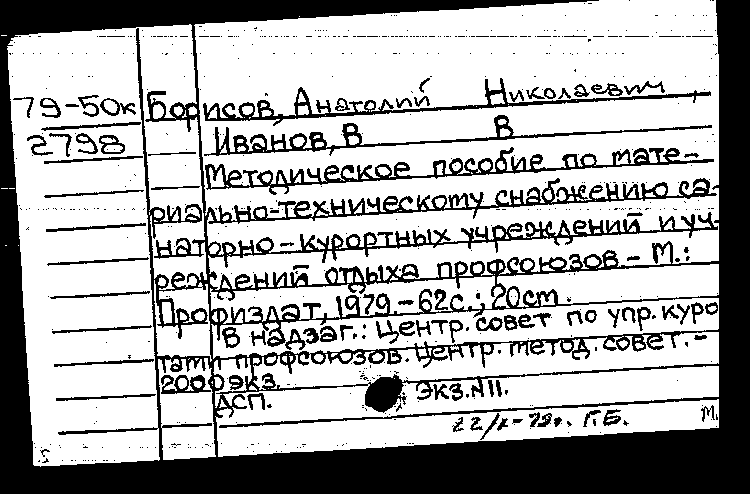 79-50к Борисов, Анатолий Николаевич,
2798 Иванов, В В
Методическое пособие по мате-
риально-техническому снабжению са-
наторно-курортных учреждений и уч-
реждений отдыха профсоюзов.- М.:
Профиздат, 1979.-62с.; 20см.
В надзаг.: Центр. совет по упр. куро
тами профсоюзов. Центр. метод. совет.-
2000экз.
ДСП. ЭКЗ.N11.
22/X-79г. Г.Б. М.